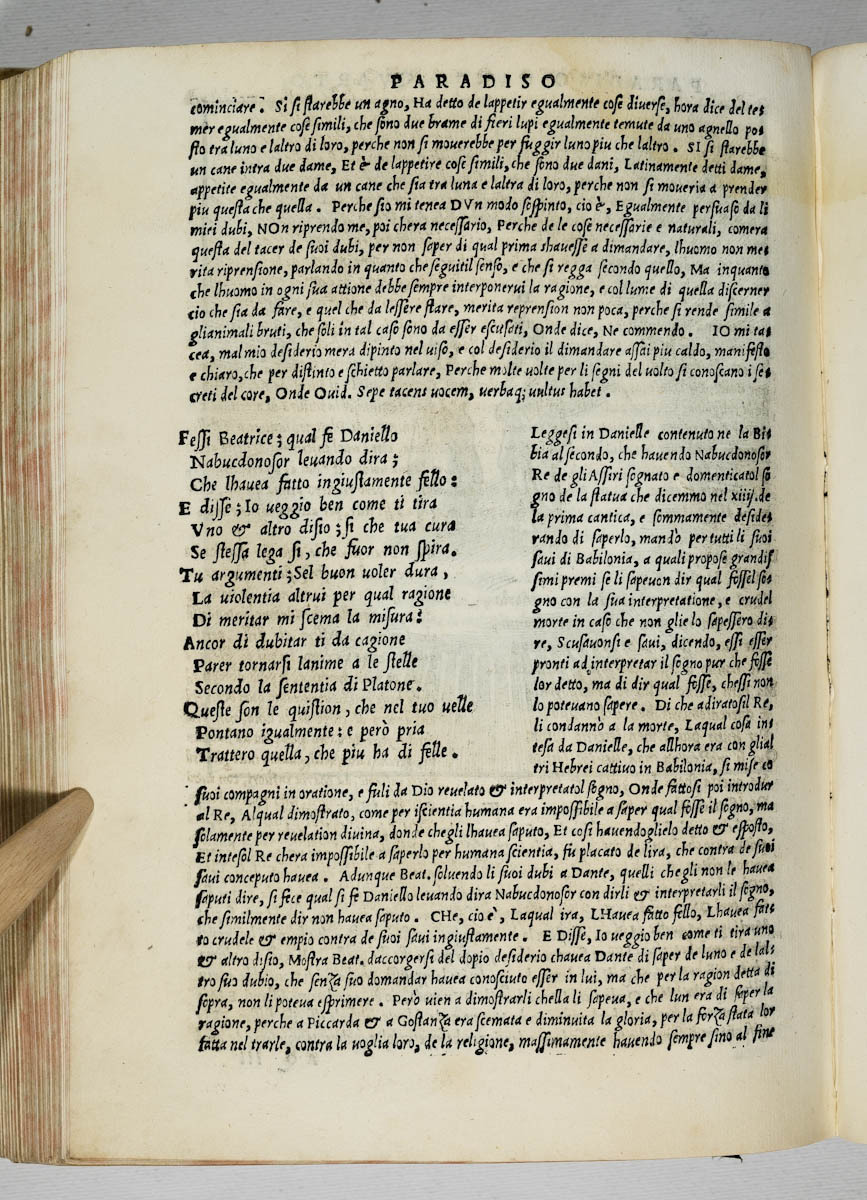 PARADISO
cominciare. Si si starebbe un agno, Ha detto de lappetir egualmente cose diverse, hora dice del te-
mer egualmente cose simili, che sono due brame di fieri lupi egualmente temute da uno agnello po-
sto tra luno e laltro di loro, perche non si mouerebbe per fuggir luno piu che laltro. SI si starebbe
un cane intra due dame, Et è de lappetire cose simili, che sono due dani, Latinamente detti dame,
appetite egualmente da un cane che sia tra luna e laltra di loro, perche non si moueria a prender
piu questa che quella. Perche sio mi tenea DVn modo sospinto, cio è, Egualmente persuaso da li
miei dubi, NOn riprendo me, poi chera necessario, Perche de le cose necessarie e naturali, comera
questa del tacer de suoi dubi, per non saper di qual prima shauesse a dimandare, lhuomo non me-
rita riprensione, parlando in quanto che seguitil senso, e che si regga secondo quello, Ma inquanto
che lhuomo in ogni sua attione debbe sempre interponerui la ragione, e col lume di quella discerner
cio che sia da fare, e quel che da lessere stare, merita reprension non poca, perche si rende simile a
glianimali bruti, che soli in tal caso sono da esser escusati, Onde dice, Ne commendo. IO mi ta-
cea, mal mio desiderio mera dipinto nel uiso, e col desiderio il dimandare assai piu caldo, manifesto
e chiaro, che per distinto e schietto parlare, Perche molte uolte per li segni del uolto si conoscano i se-
creti del core, Onde Ouid. Sepe tacens uocem, uerbaq; uultus habet.
Fessi Beatrice; qual fe Daniello
Nabucdonosor leuando dira;
Che lhauea fatto ingiustamente fello:
E disse; Io ueggio ben come ti tira
Vno & altro disio; si che tua cura
Se stessa lega si, che fuor non spira.
Tu argumenti; Sel buon uoler dura,
La uiolentia altrui per qual ragione
Di meritar mi scema la misura?
Ancor di dubitar ti da cagione
Parer tornarsi lanime a le stelle
Secondo la sententia di Platone.
Queste son le quistion, che nel tuo uelle
Pontano igualmente: e però pria
Trattero quella, che piu ha di felle.
Leggesi in Danielle contenuto ne la Bi-
bia al secondo, che hauendo Nabucdonosor
Re de gli Assiri sognato e domenticatol so
gno de la statua che dicemmo nel xiiij. de
la prima cantica, e sommamente deside-
rando di saperlo, mandò per tutti li suoi
saui di Babilonia, a quali propose grandis
simi premi se li sapeuon dir qual fossel so-
gno con la sua interpretatione, e crudel
morte in caso che non glie lo sapessero di-
re, Scusauonsi e saui, dicendo, essi esser
pronti ad interpretar il segno pur che fosse
lor detto, ma di dir qual fosse, chessi non
lo poteuano sapere. Di che adiratosil Re,
li condannò a la morte, Laqual cosa in-
tesa da Danielle, che allhora era con glial
tri Hebrei cattiuo in Babilonia, si mise co
suoi compagni in oratione, e fuli da Dio reuelato & interpretatol segno, Onde fattosi poi introdur
al Re, Alqual dimostrato, come per iscientia humana era impossibile a saper qual fosse il segno, ma
solamente per reuelation diuina, donde chegli lhauea saputo, Et cosi hauendoglielo detto & esposto,
Et intesol Re chera impossibile a saperlo per humana scientia, fu placato de lira, che contra de suoi
saui conceputo hauea. Adunque Beat. soluendo li suoi dubi a Dante, quelli chegli non le hauea
saputi dire, si fece qual si fe Daniello leuando dira Nabucdonosor con dirli & interpretarli il segno,
che similmente dir non hauea saputo. CHe, cio è, Laqual ira, LHauea fatto fello, Lhauea fat-
to crudele & empio contra de suoi saui ingiustamente. E Disse, Io ueggio ben come ti tira uno
& altro disio, Mostra Beat. daccorgersi del dopio desiderio chauea Dante di saper de luno e de lal-
tro suo dubio, che senza suo domandar hauea conosciuto esser in lui, ma che per la ragion detta di
sopra, non li poteua esprimere. Però uien a dimostrarli chella li sapeua, e che lun era di saper la
ragione, perche a Piccarda & a Gostanza era scemata e diminuita la gloria, per la forza stata lor
fatta nel trarle, contra la uoglia loro, de la religione, massimamente hauendo sempre sino al fine